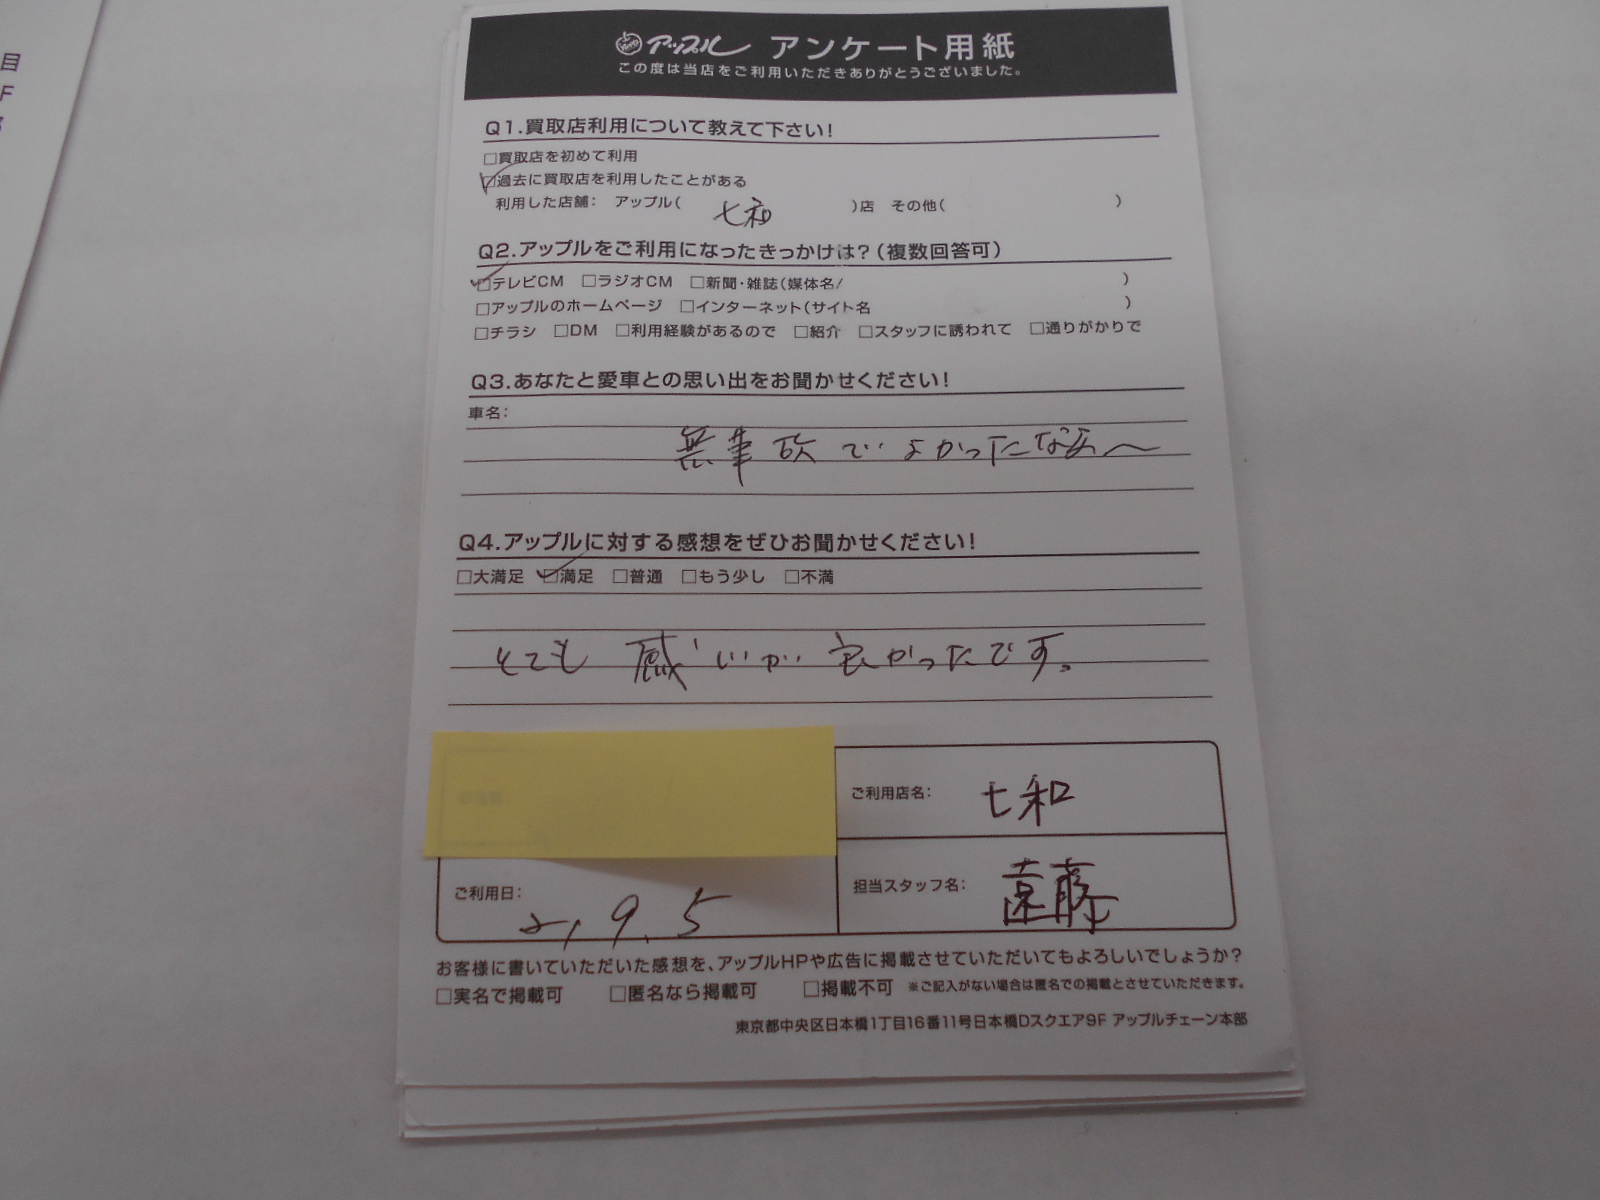 目
F
アップル アンケート用紙
この度は当店をご利用いただきありがとうございました。
Q1.買取店利用について教えて下さい!
□買取店を初めて利用
☑過去に買取店を利用したことがある
利用した店舗: アップル( 七和 )店 その他( )
Q2.アップルをご利用になったきっかけは?(複数回答可)
☑テレビCM □ラジオCM □新聞・雑誌(媒体名/ )
□アップルのホームページ □インターネット(サイト名 )
□チラシ □DM □利用経験があるので □紹介 □スタッフに誘われて □通りがかりで
Q3.あなたと愛車との思い出をお聞かせください!
車名:
無事故でよかったなあ〜
Q4.アップルに対する感想をぜひお聞かせください!
□大満足 ☑満足 □普通 □もう少し □不満
とても感じが良かったです。
ご利用店名: 七和
ご利用日: 2, 9. 5
担当スタッフ名: 遠藤
お客様に書いていただいた感想を、アップルHPや広告に掲載させていただいてもよろしいでしょうか?
□実名で掲載可 □匿名なら掲載可 □掲載不可 ※ご記入がない場合は匿名での掲載とさせていただきます。
東京都中央区日本橋1丁目16番11号日本橋Dスクエア9F アップルチェーン本部